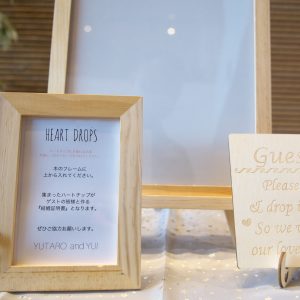 HEART DROPS
木のフレームに
上から入れてください。
集まったハートチップが
ゲストの皆様と作る
『結婚証明書』となります。
ぜひご協力お願いします。
YUTARO and YUI
Gues
Please
& drop i
So we w
our love